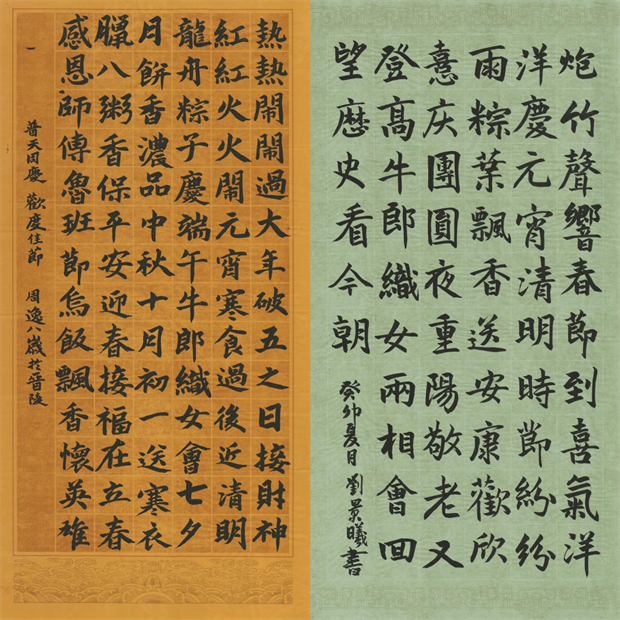 炮竹聲響春節到喜氣洋
洋慶元宵清明時節紛紛
雨粽葉飄香送安康歡欣
憙庆團圓夜重陽敬老又
登髙牛郎織女兩相會囬
望歷史看今朝
癸卯夏月 劉景曦書
熱熱鬧鬧過大年破五之日接財神
紅紅火火鬧元宵寒食過後近清明
龍舟粽子慶端午牛郎織女會七夕
月餅香濃品中秋十月初一送寒衣
臘八粥香保平安迎春接福在立春
感恩師傅魯班節烏飯飄香懷英雄
普天同慶 歡度佳節 周逸八歲於晉陵